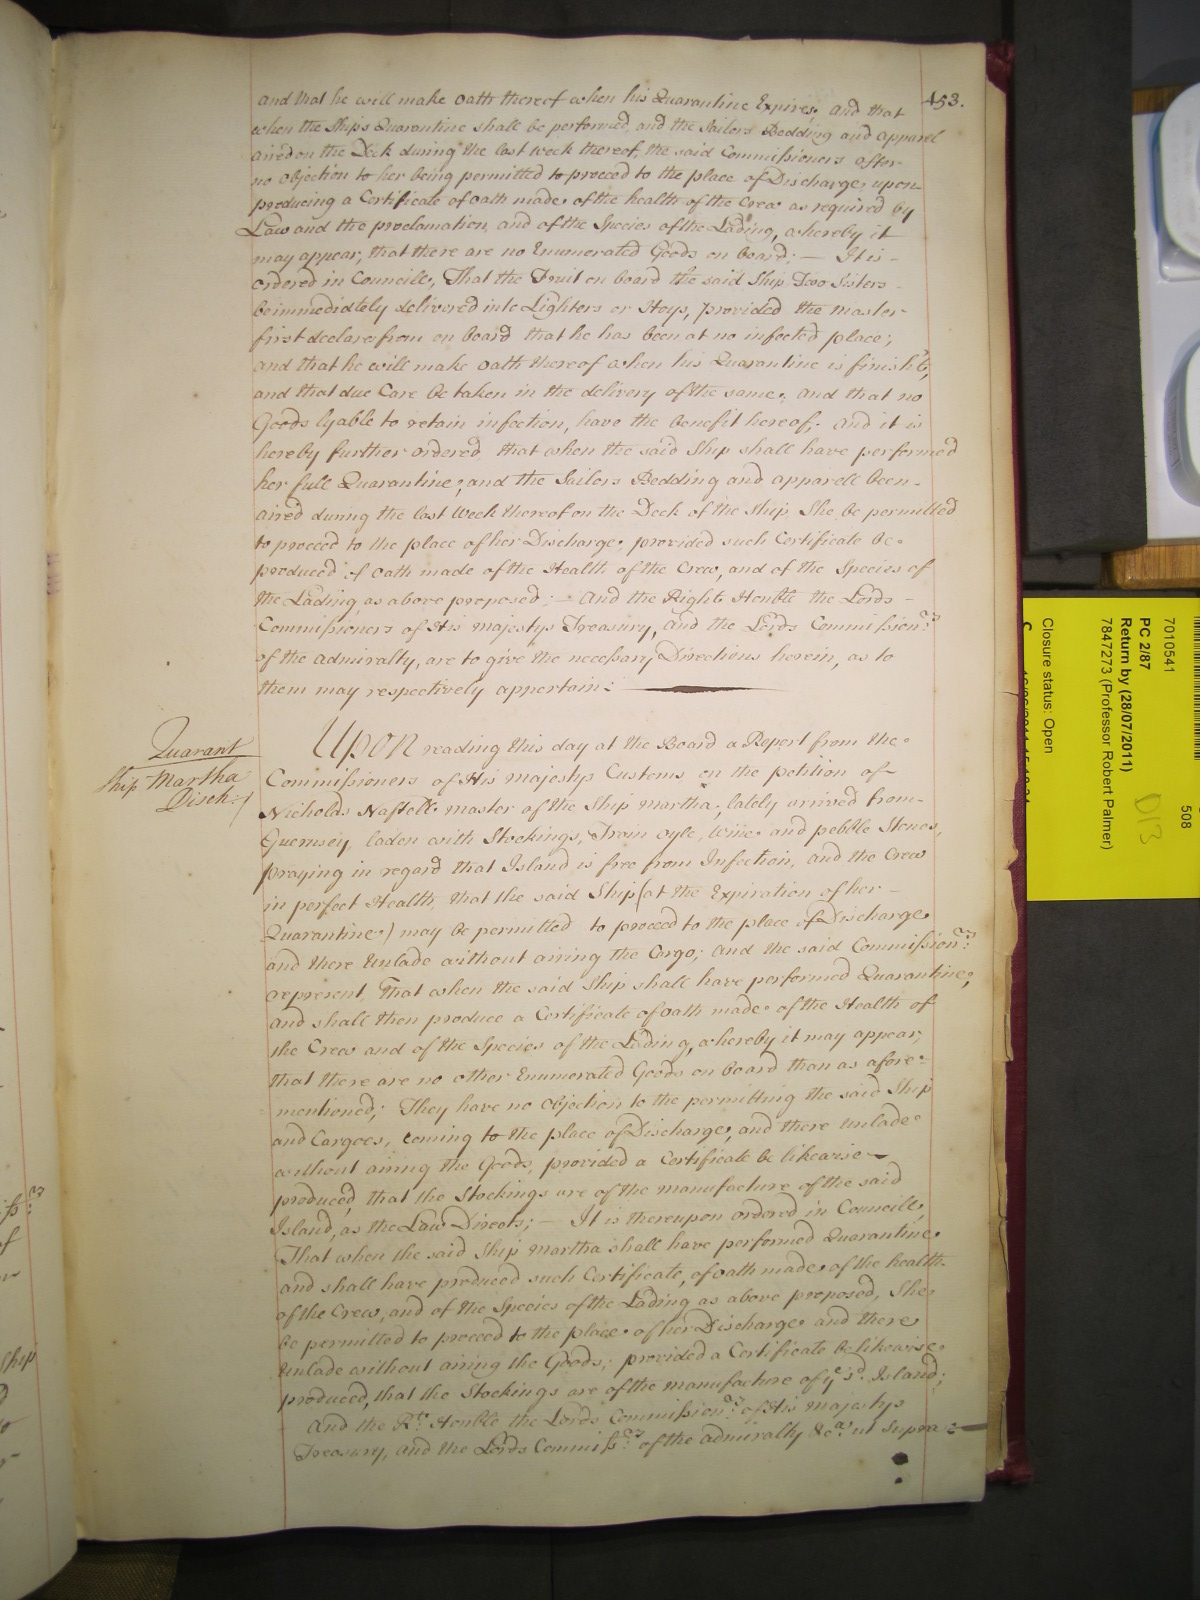 453.
and that he will make Oath thereof when his Quarantine Expires, and that
when the Ships Quarantine shall be performed, and the Sailers Bedding and apparel
aired on the Deck during the last week thereof, the said Commissioners offer
no objection to her being permitted to proceed to the place of Discharge, upon
producing a Certificate of Oath made, of the health of the Crew as required by
Law and the proclamation, and of the Species of the Lading, whereby it
may appear, that there are no Enumerated Goods on board; — It is -
ordered in Councill, That the Fruit on board the said Ship Two Sisters
be immediately delivered into Lighters or Hoys, provided the Master
first declare from on board that he has been at no infected place;
and that he will make Oath thereof when his Quarantine is finish'd,
and that due Care be taken in the delivery of the same, and that no
Goods lyable to retain infection, have the benefit hereof; And it is
hereby further ordered, that when the said Ship shall have performed
her full Quarantine, and the Sailers Bedding and apparell been -
aired during the last Week thereof on the Deck of the Ship, She be permitted
to proceed to the place of her Discharge, provided such Certificate be
produced of Oath made of the Health of the Crew, and of the Species of
the Lading, as above proposed; - And the Right Honble the Lords -
Commissioners of His Majestys Treasury, and the Lords Commission.rs
of the Admiralty, are to give the necessary Directions herein, as to
them may respectively appertain:
Quarant
Ship Martha
Disch:
Upon reading this day at the Board a Report from the
Commissioners of His Majestys Customs on the petition of
Nicholas Naftell master of the Ship Martha, lately arrived from
Guernsey, laden with Stockings, Train oyle, Wine and pebble Stones,
praying in regard that Island is free from Infection, and the Crew
in perfect Health, that the said Ship (at the Expiration of her -
Quarantine) may be permitted to proceed to the place of Discharge
and there Unlade without airing the Cargo; And the said Commission.rs
represent, That when the said Ship shall have performed Quarantine,
and shall then produce a Certificate of Oath made of the Health of
the Crew and of the Species of the Lading, whereby it may appear,
that there are no other Enumerated Goods on board than as afore=
mentioned; They have no objection to the permitting the said Ship
and Cargoes, coming to the place of Discharge, and there Unlade
without airing the Goods, provided a Certificate be likewise
produced, that the Stockings are of the manufacture of the said
Island, as the Law Directs; — It is thereupon ordered in Councill,
That when the said Ship Martha shall have performed Quarantine
and shall have produced such Certificate, of Oath made of the health
of the Crew, and of the Species of the Lading as above proposed, She
be permitted to proceed to the place of her Discharge and there
Unlade without airing the Goods; provided a Certificate be likewise
produced, that the Stockings are of the manufacture of ye sd. Island;
And the Rt. Honble the Lords Commission.rs of His Majestys
Treasury, and the Lords Commiss.rs of the Admiralty &ca. ut supra:
Ship
7010541
508
PC 2/87
Return by (28/07/2011)
7847273 (Professor Robert Palmer)
D13
Closure status: Open